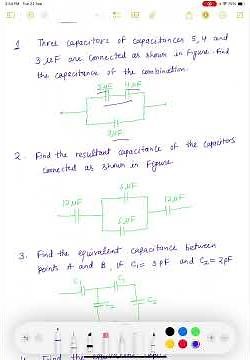 1 Three capacitors of capacitances 5, 4 and
3 µF are connected as shown in figure. Find
the capacitance of the combination.
5µF 4µF
3µF
2. Find the resultant capacitance of the capacitors
connected as shown in Figure
6µF
12µF 12µF
6µF
3. Find the equivalent capacitance between
points A and B, if C₁= 3pF and C₂= 2pF
C₁ C₁
C₂ C₂
4. Find the